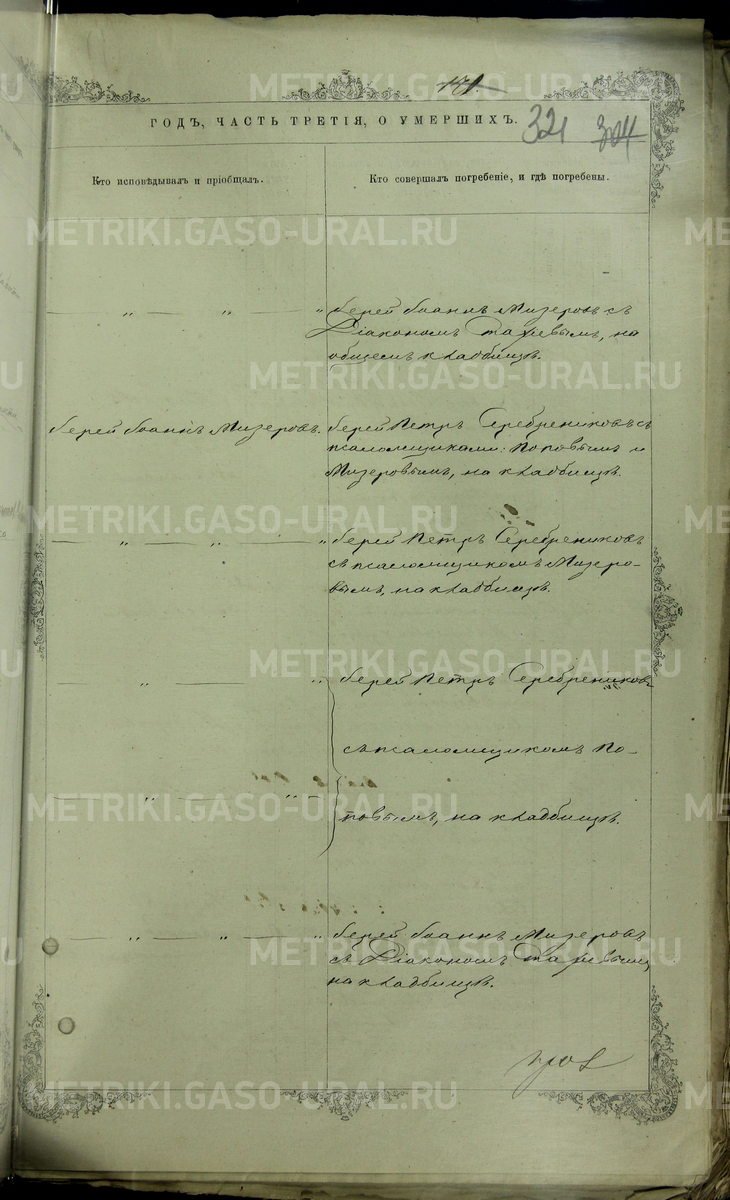 171.
ГОДЪ, ЧАСТЬ ТРЕТІЯ, О УМЕРШИХЪ.
321
304
Кто исповѣдывалъ и пріобщалъ.
Кто совершалъ погребеніе, и гдѣ погребены.
„ „ „
Іерей Іоаннъ Мизеровъ съ
Діакономъ, на
общемъ кладбищѣ.
Іерей Іоаннъ Мизеровъ.
Іерей Петръ Серебрениковъ съ
псаломщиками: Поповымъ и
Мизеровымъ, на кладбищѣ.
„ „ „
Іерей Петръ Серебрениковъ
съ псаломщикомъ Мизеро-
вымъ, на кладбищѣ.
„ „
Іерей Петръ Серебрениковъ
съ псаломщикомъ По-
„ „
повымъ, на кладбищѣ.
„ „ „
Іерей Іоаннъ Мизеровъ
съ Діакономъ
на кладбищѣ.
METRIKI.GASO-URAL.RU